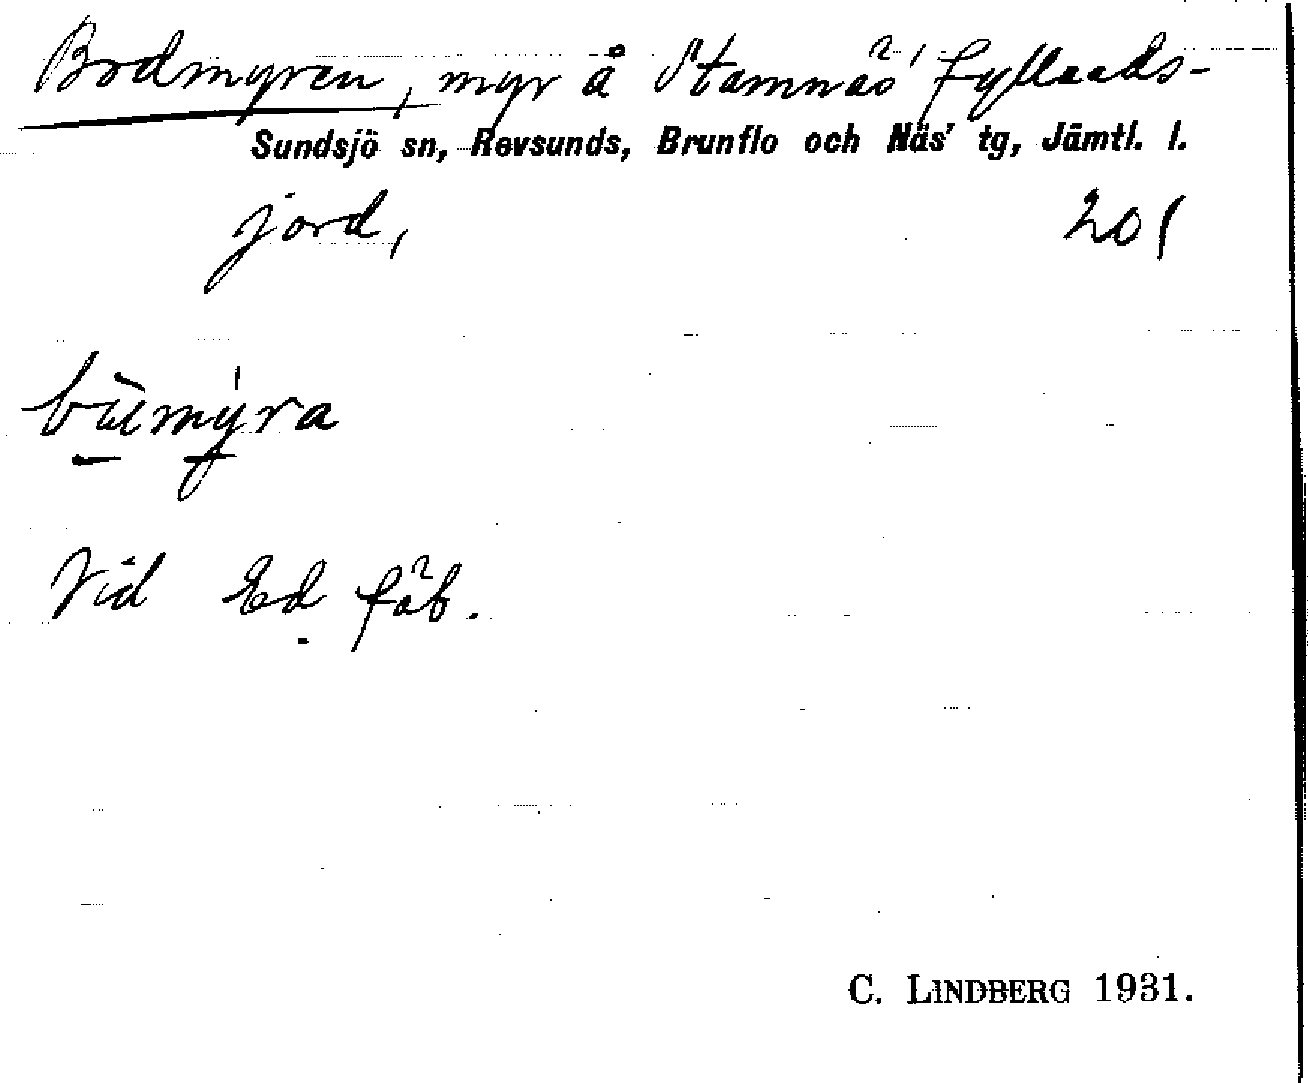 Bodmyren, myr å Stamnäs' fyllnads-
Sundsjö sn, Revsunds, Brunflo och Näs' tg, Jämtl. l.
jord, 201
bùmýra
Vid Ed fäb.
C. LINDBERG 1931.